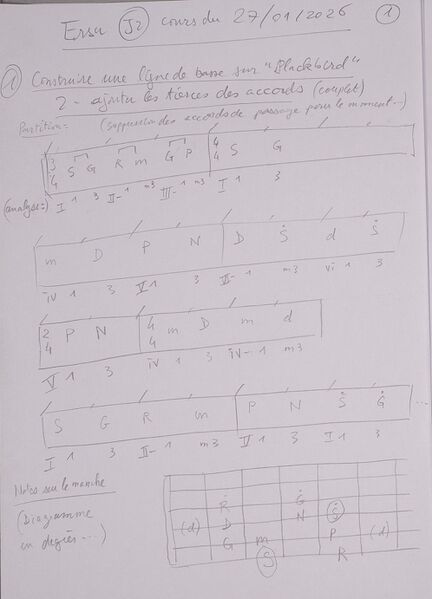 Ersu J2 cours du 27/01/2026 1
1 Construire une ligne de basse sur "Blackbird"
2 - ajouter les tierces des accords (couplet)
Partition: (suppression des accords de passage pour le moment...)
3 4 S G R m G P 4 4 S G
(analyse:) I 1 3 II- 1 m3 III- 1 m3 I 1 3
m D P N D Ṡ d Ṡ
IV 1 3 V 1 3 II- 1 m3 VI 1 3
2 4 P N 4 4 m D m d
V 1 3 IV 1 3 IV- 1 m3
S G R m P N Ṡ Ġ ...
I 1 3 II- 1 m3 V 1 3 I 1 3
Notes sur le manche
(Diagramme
en degrés...)
Ṙ Ġ
(d) D N Ṡ
G m P (d)
S R